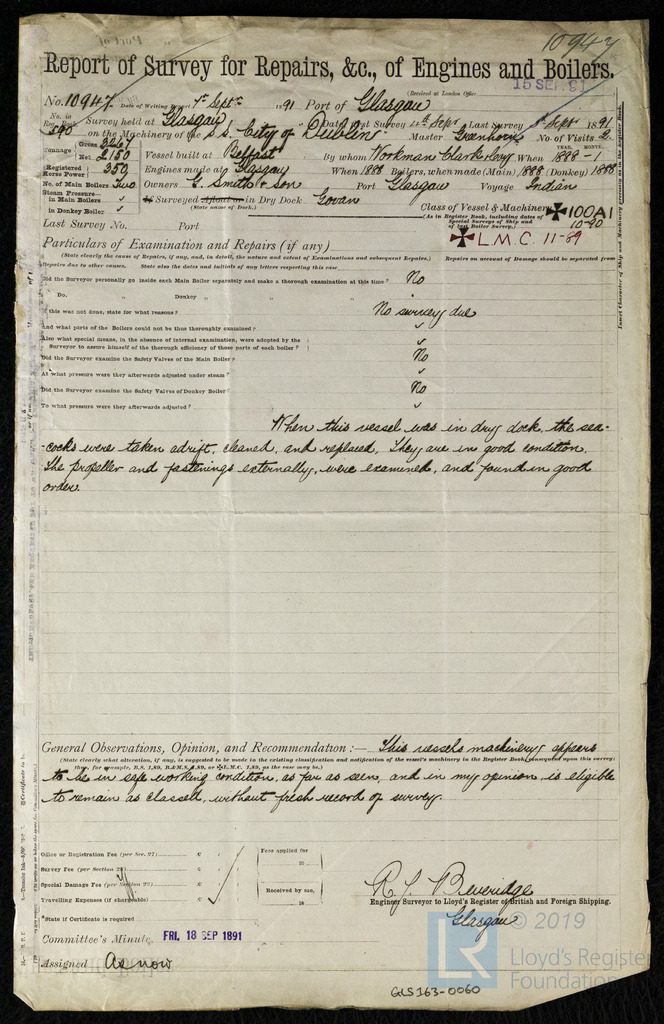 10947
Report of Survey for Repairs, &c., of Engines and Boilers.
(Received at London Office 15 SEP. 91
No. 10947 Date of Writing Report 7th Septr 1891 Port of Glasgow
No. in Reg. Book 590 Survey held at Glasgow Date, first Survey 4th Septr Last Survey 5th Septr 1891
on the Machinery of the S.S. "City of Dublin" Master No. of Visits 2
Tonnage Gross 3267
Net 2150 Vessel built at Belfast By whom Workman Clark & Coy When YEAR. MONTH. 1888 - 1
Registered Horse Power 350 Engines made at Glasgow When 1888 Boilers, when made (Main) 1888 (Donkey) 1888
No. of Main Boilers Two Owners G. Smith & Son Port Glasgow Voyage Indian
Steam Pressure in Main Boilers ✓ If Surveyed Afloat or in Dry Dock Govan
(State name of Dock.)
in Donkey Boiler ✓
Class of Vessel & Machinery ✠100A1
(As in Register Book, including dates of Special Surveys of Ship and of last Boiler Survey.) 10-90
Last Survey No. Port ✠L.M.C. 11-89
Particulars of Examination and Repairs (if any)
(State clearly the cause of Repairs, if any, and, in detail, the nature and extent of Examinations and subsequent Repairs.) Repairs on account of Damage should be separated from
Repairs due to other causes. State also the dates and initials of any letters respecting this case
Did the Surveyor personally go inside each Main Boiler separately and make a thorough examination at this time? No
Do. " Donkey " " "
If this was not done, state for what reasons? No survey due
And what parts of the Boilers could not be thus thoroughly examined? ✓
Also what special means, in the absence of internal examination, were adopted by the
Surveyor to assure himself of the thorough efficiency of those parts of each boiler? ✓
Did the Surveyor examine the Safety Valves of the Main Boiler? No
At what pressure were they afterwards adjusted under steam? ✓
Did the Surveyor examine the Safety Valves of Donkey Boiler? No
To what pressure were they afterwards adjusted? ✓
When this vessel was in dry dock, the sea-
cocks were taken adrift, cleaned, and replaced. They are in good condition.
The propeller and fastenings externally, were examined, and found in good
order.
General Observations, Opinion, and Recommendation :— This vessels machinery appears
(State clearly what alteration, if any, is suggested to be made in the existing classification and notification of the vessel's machinery in the Register Book, consequent upon this survey;
thus, for example, B.S. 1,89, B.&M.S. 1,89, or ✠L.M.C. 1,89, as the case may be.)
to be in safe working condition, as far as seen, and in my opinion is eligible
to remain as classed, without fresh record of survey.
Office or Registration Fee (per Sec. 27) £
Survey Fee (per Section 28) £
Special Damage Fee (per Section 28) £
Travelling Expenses (if chargeable) £
Fees applied for 18
Received by me, 18
R. J. Beveridge
Engineer Surveyor to Lloyd's Register of British and Foreign Shipping.
Glasgow
*State if Certificate is required
Committee's Minute FRI. 18 SEP 1891
Assigned As now
Insert Character of Ship and Machinery precisely as in the Register Book.
© 2019
LR
Lloyd's Register
Foundation
GLS163-0060